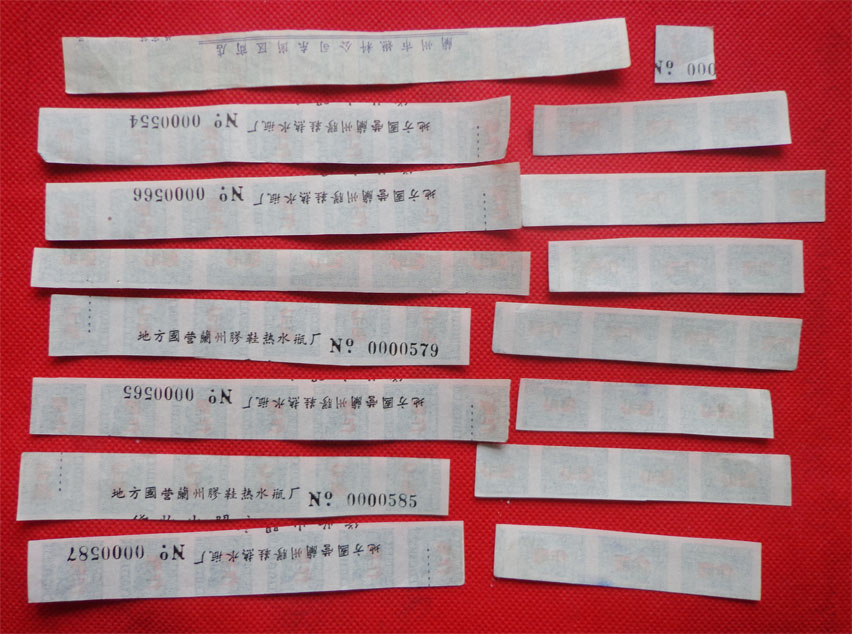 蘭州市燃料公司东崗区商店
No 000
地方國營蘭州膠鞋热水瓶厂 No 0000554
地方國營蘭州膠鞋热水瓶厂 No 0000566
地方國營蘭州膠鞋热水瓶厂 No 0000579
地方國營蘭州膠鞋热水瓶厂 No 0000565
地方國營蘭州膠鞋热水瓶厂 No 0000585
地方國營蘭州膠鞋热水瓶厂 No 0000587